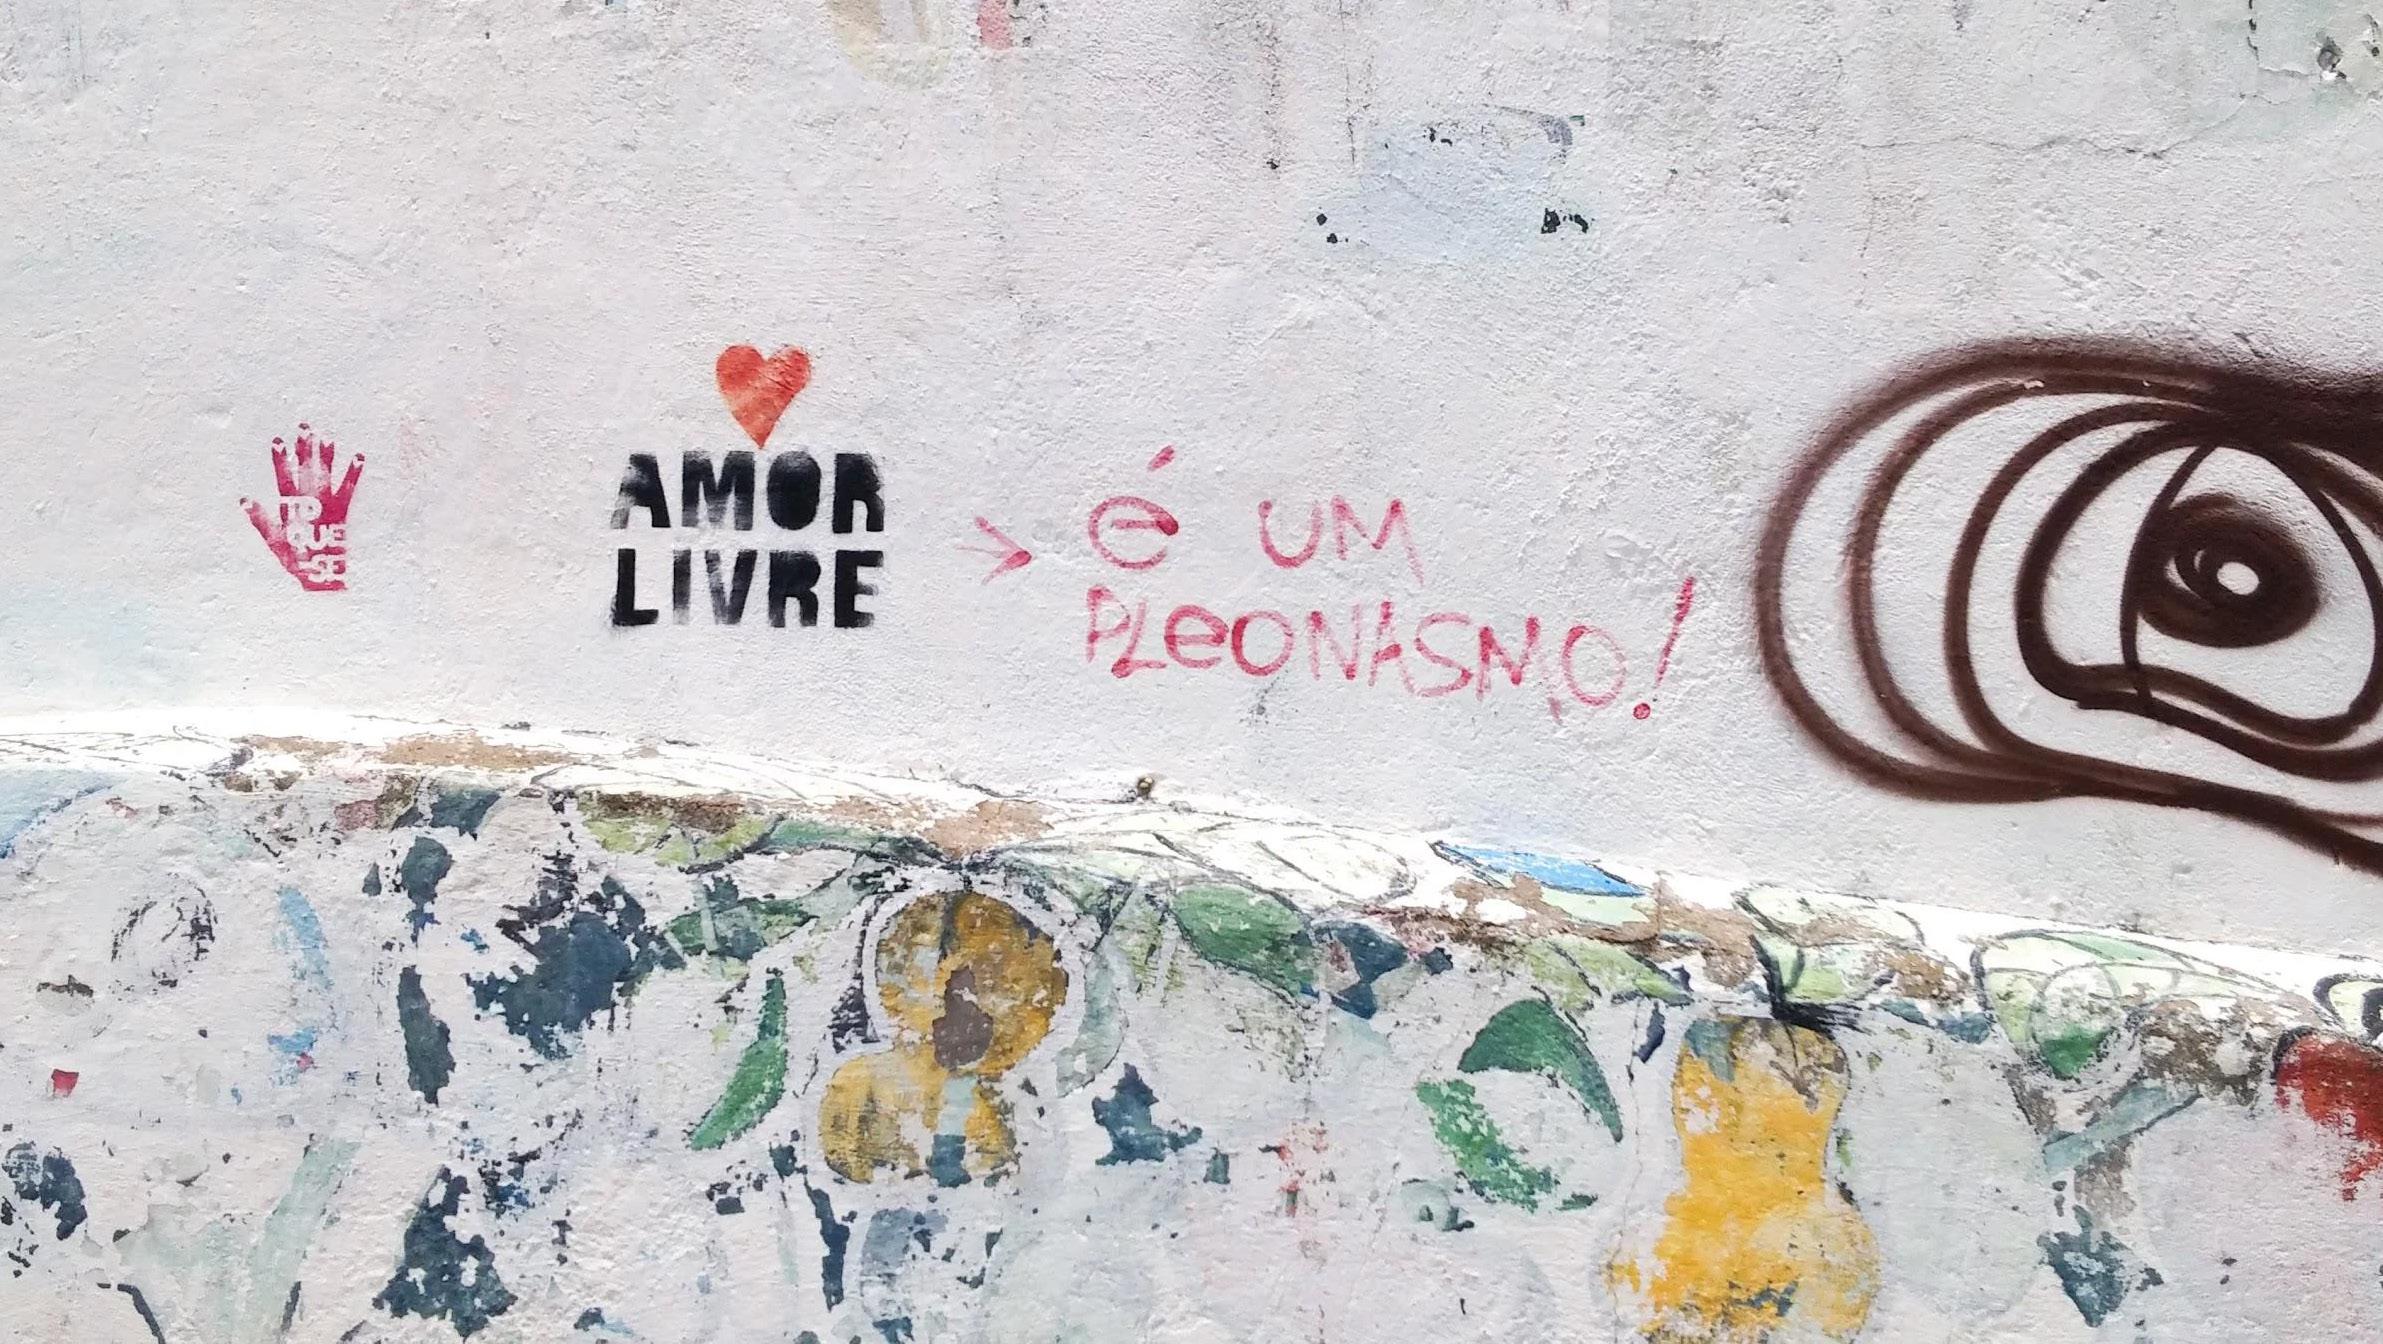 TO
QUE
-SE
AMOR
LIVRE
> É UM
PLEONASMO!